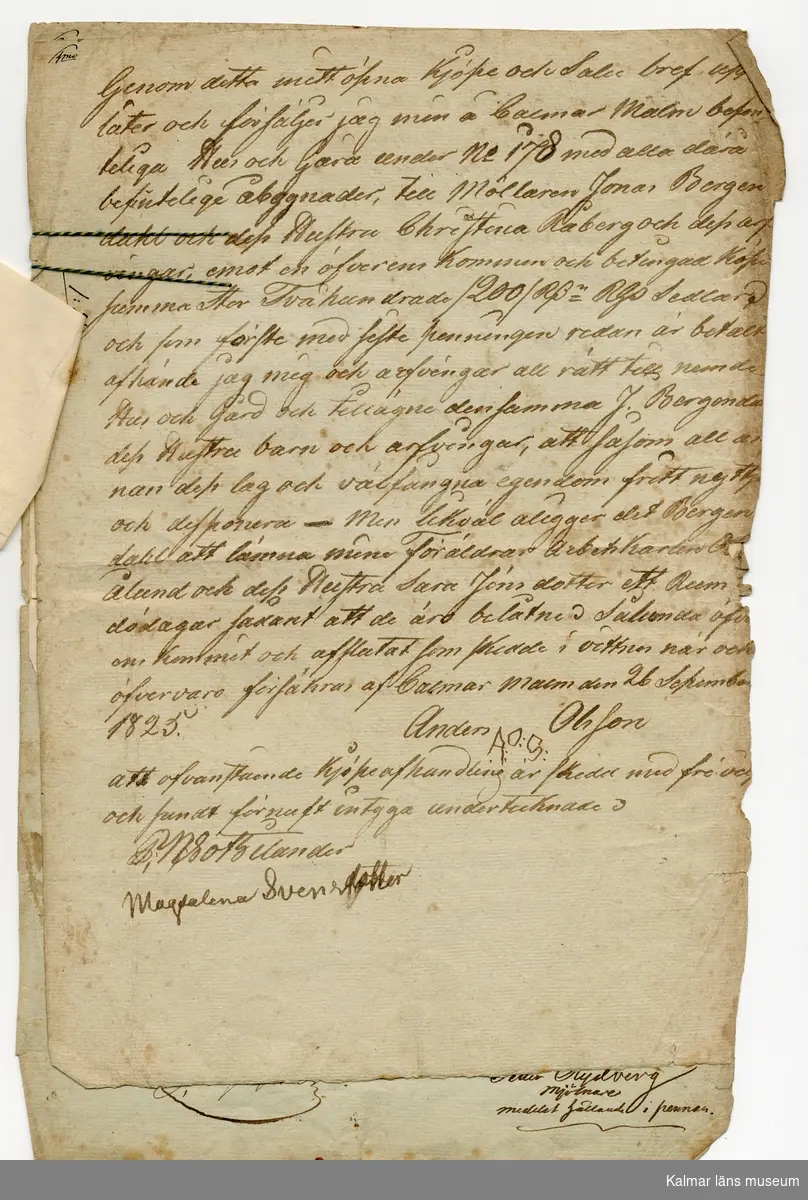 Genom detta mitt öpna Kjöpe och Salu bref, upp
låter och försäljer jag min å Calmar Malm befin
teliga Hus och Gård under No 178 med alla dårå
befintelige åbygnader, till Möllaren Jonas Bergen
dahl och dess Hustru Christina Råberg och dess arf
vingar, emot en öfverens kommen och betingad Köpe
summa Stor Tvåhundrade /200/ Rdr Rgs Sedlar
och som förste med siste penningen redan är betalt
afhände jag mig och arfvingar all rätt till nemde
Hus och Gård och tillägne densamma J. Bergenda
dess Hustru barn och arfvingar, att såsom all an
nan dess lag och välfångna egendom fritt nyttja
och disponera — Men likväl åligger det Bergen
dahl att lämna mine Föräldrar Arbetskarlen O
Ålund och dess Hustru Sara Jönsdotter ett Rum
dödagar sådant att de äro belåtne Sålunda öfver
ens kommit och afslutat som skedde i vittnes när och
öfvervaro försäkras af Calmar Malm den 26 September
1825. Anders Olsson
A:O:S:
att ofvanstående Kjöpeafhandling är skedd med fri vilj
och sundt förnuft intyga undertecknade
Götelander
Magdalena Svensdotter
Petter Rydberg
Mjölnare
medelst hållande i pennan.
Kalmar läns museum